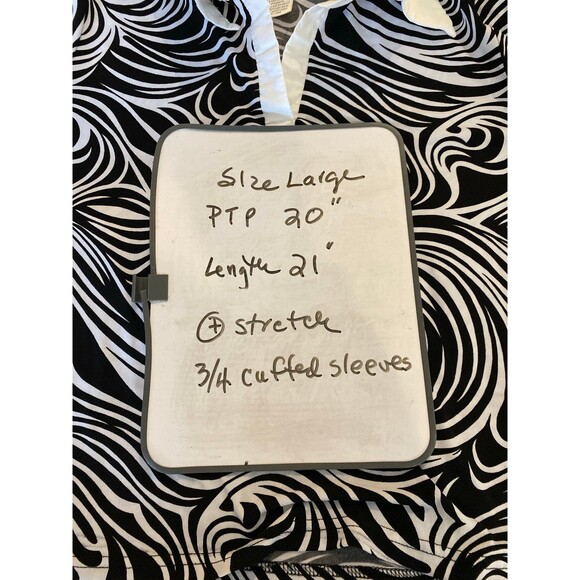 Size Large
PTP 20"
Length 21"
⊕ stretch
3/4 cuffed sleeves